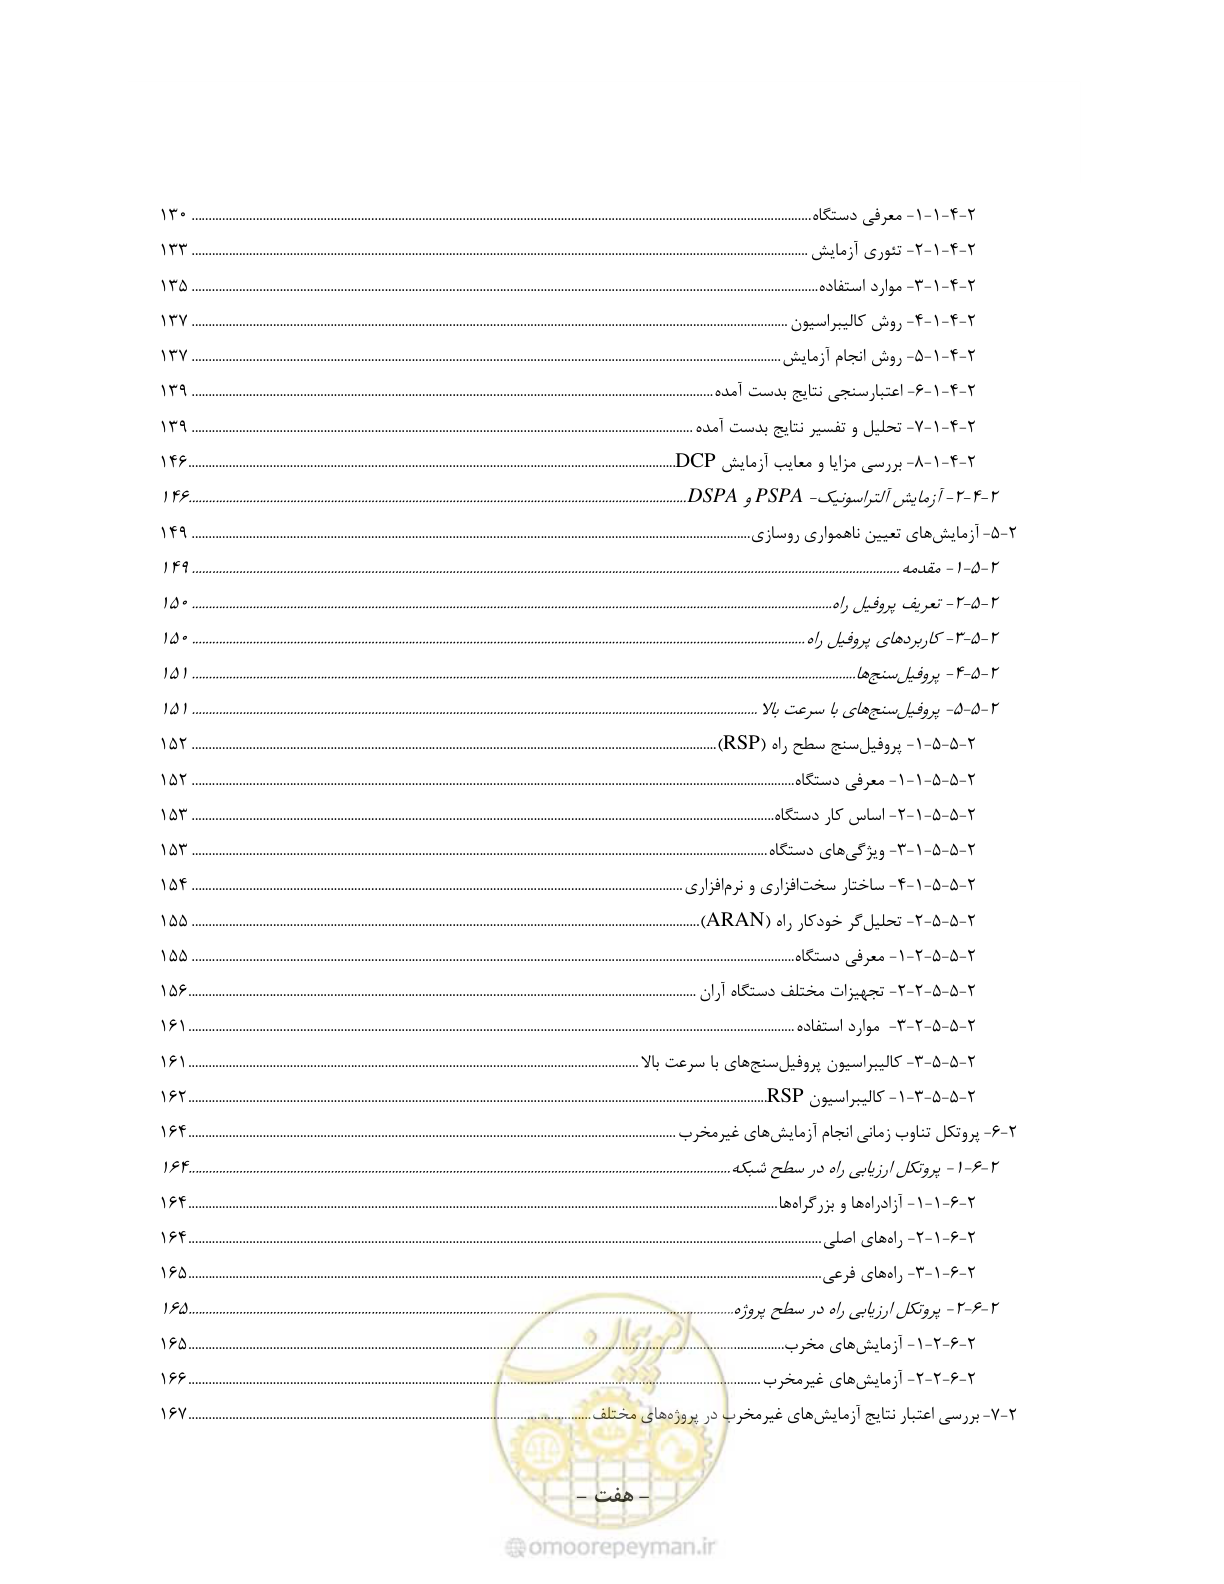 ۲-۴-۱-۱- معرفی دستگاه ........ ۱۳۰
۲-۴-۱-۲- تئوری آزمایش ........ ۱۳۳
۲-۴-۱-۳- موارد استفاده ........ ۱۳۵
۲-۴-۱-۴- روش کالیبراسیون ........ ۱۳۷
۲-۴-۱-۵- روش انجام آزمایش ........ ۱۳۷
۲-۴-۱-۶- اعتبارسنجی نتایج بدست آمده ........ ۱۳۹
۲-۴-۱-۷- تحلیل و تفسیر نتایج بدست آمده ........ ۱۳۹
۲-۴-۱-۸- بررسی مزایا و معایب آزمایش DCP ........ ۱۴۶
۲-۴-۲- آزمایش آلتراسونیک- PSPA و DSPA ........ ۱۴۶
۲-۵- آزمایش‌های تعیین ناهمواری روسازی ........ ۱۴۹
۲-۵-۱- مقدمه ........ ۱۴۹
۲-۵-۲- تعریف پروفیل راه ........ ۱۵۰
۲-۵-۳- کاربردهای پروفیل راه ........ ۱۵۰
۲-۵-۴- پروفیل‌سنج‌ها ........ ۱۵۱
۲-۵-۵- پروفیل‌سنج‌های با سرعت بالا ........ ۱۵۱
۲-۵-۵-۱- پروفیل‌سنج سطح راه (RSP) ........ ۱۵۲
۲-۵-۵-۱-۱- معرفی دستگاه ........ ۱۵۲
۲-۵-۵-۱-۲- اساس کار دستگاه ........ ۱۵۳
۲-۵-۵-۱-۳- ویژگی‌های دستگاه ........ ۱۵۳
۲-۵-۵-۱-۴- ساختار سخت‌افزاری و نرم‌افزاری ........ ۱۵۴
۲-۵-۵-۲- تحلیل‌گر خودکار راه (ARAN) ........ ۱۵۵
۲-۵-۵-۲-۱- معرفی دستگاه ........ ۱۵۵
۲-۵-۵-۲-۲- تجهیزات مختلف دستگاه آران ........ ۱۵۶
۲-۵-۵-۲-۳- موارد استفاده ........ ۱۶۱
۲-۵-۵-۳- کالیبراسیون پروفیل‌سنج‌های با سرعت بالا ........ ۱۶۱
۲-۵-۵-۳-۱- کالیبراسیون RSP ........ ۱۶۲
۲-۶- پروتکل تناوب زمانی انجام آزمایش‌های غیرمخرب ........ ۱۶۴
۲-۶-۱- پروتکل ارزیابی راه در سطح شبکه ........ ۱۶۴
۲-۶-۱-۱- آزادراه‌ها و بزرگراه‌ها ........ ۱۶۴
۲-۶-۱-۲- راه‌های اصلی ........ ۱۶۴
۲-۶-۱-۳- راه‌های فرعی ........ ۱۶۵
۲-۶-۲- پروتکل ارزیابی راه در سطح پروژه ........ ۱۶۵
۲-۶-۲-۱- آزمایش‌های مخرب ........ ۱۶۵
۲-۶-۲-۲- آزمایش‌های غیرمخرب ........ ۱۶۶
۲-۷- بررسی اعتبار نتایج آزمایش‌های غیرمخرب در پروژه‌های مختلف ........ ۱۶۷
امور پیمان
- هفت -
@omoorepeyman.ir